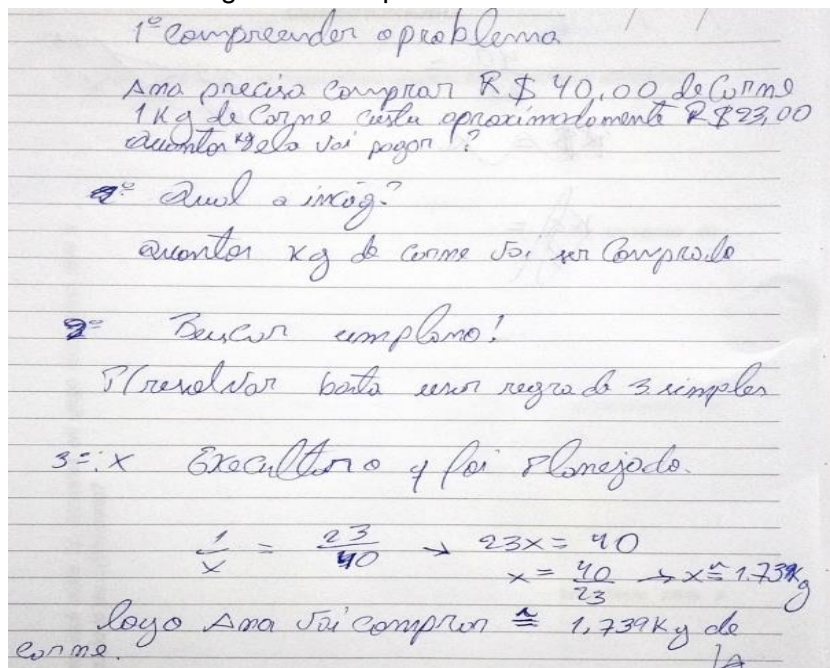 1º compreender o problema
Ana precisa comprar R$ 40,00 de Carne
1 Kg de Carne custa aproximadamente R$23,00
Quantos kg ela vai pagar?
Qual a incóg?
Quantos kg de carne vai ser Comprado
2º Buscar um plano!
P/ resolver basta usar regra de 3 simples
3º: x Execultar o q foi Planejado.
1/x = 23/40 → 23x = 40
x = 40/23 → x ≅ 1.739Kg
logo Ana vai comprar ≅ 1,739Kg de
carne.